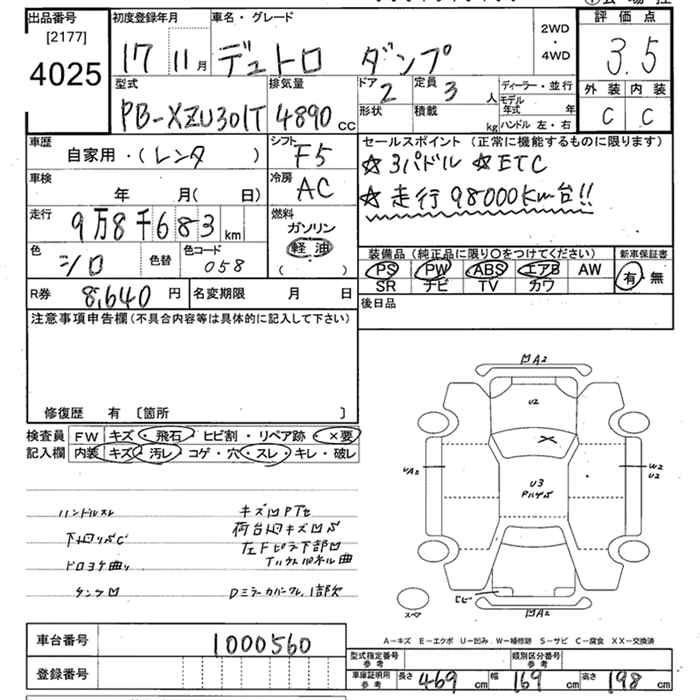 出品番号
[2177]
4025
初度登録年月
17 11月
車名・グレード
デュトロ ダンプ
2WD
・
4WD
評価点
3.5
外装 内装
C C
型式
PB-XZU301T
排気量
4890 cc
ドア
2
定員
3 人
形状 積載 kg
ディーラー・並行
モデル年式 年
ハンドル 左・右
車歴
自家用・(レンタ )
シフト
F5
車検
年 月( 日)
冷房
AC
走行
9万8千683 km
燃料
ガソリン
軽油
( )
色
シロ
色替
色コード
058
R券 8,640 円
名変期限 月 日
セールスポイント (正常に機能するものに限ります)
☆3パドル ☆ETC
☆走行98000Km台!!
装備品(純正品に限り〇をつけてください)
PS PW ABS エアB AW
SR ナビ TV カワ
新車保証書
有・無
後日品
注意事項申告欄(不具合内容等は具体的に記入して下さい)
修復歴 有 〔箇所 〕
検査員
記入欄
FW キズ・飛石・ヒビ割・リペア跡・×要
内装 キズ・汚レ・コゲ・穴・スレ・キレ・破レ
ハンドルスレ
キズ凹
下廻りSC
荷台廻キズ凹S
ドロヨケ曲り
左Fピラ下部凹
タンク凹
Dミラーカバークレ,1部欠
凹A2
U2
UA2
U3
W2
U2
凹A2
スペア
A-キズ E-エクボ U-凹み W-補修跡 S-サビ C-腐食 XX-交換済
車台番号 1000560
登録番号
型式指定番号
参考
類別区分番号
参考
車庫証明用
参考
長さ 469 cm 幅 169 cm 高さ 198 cm